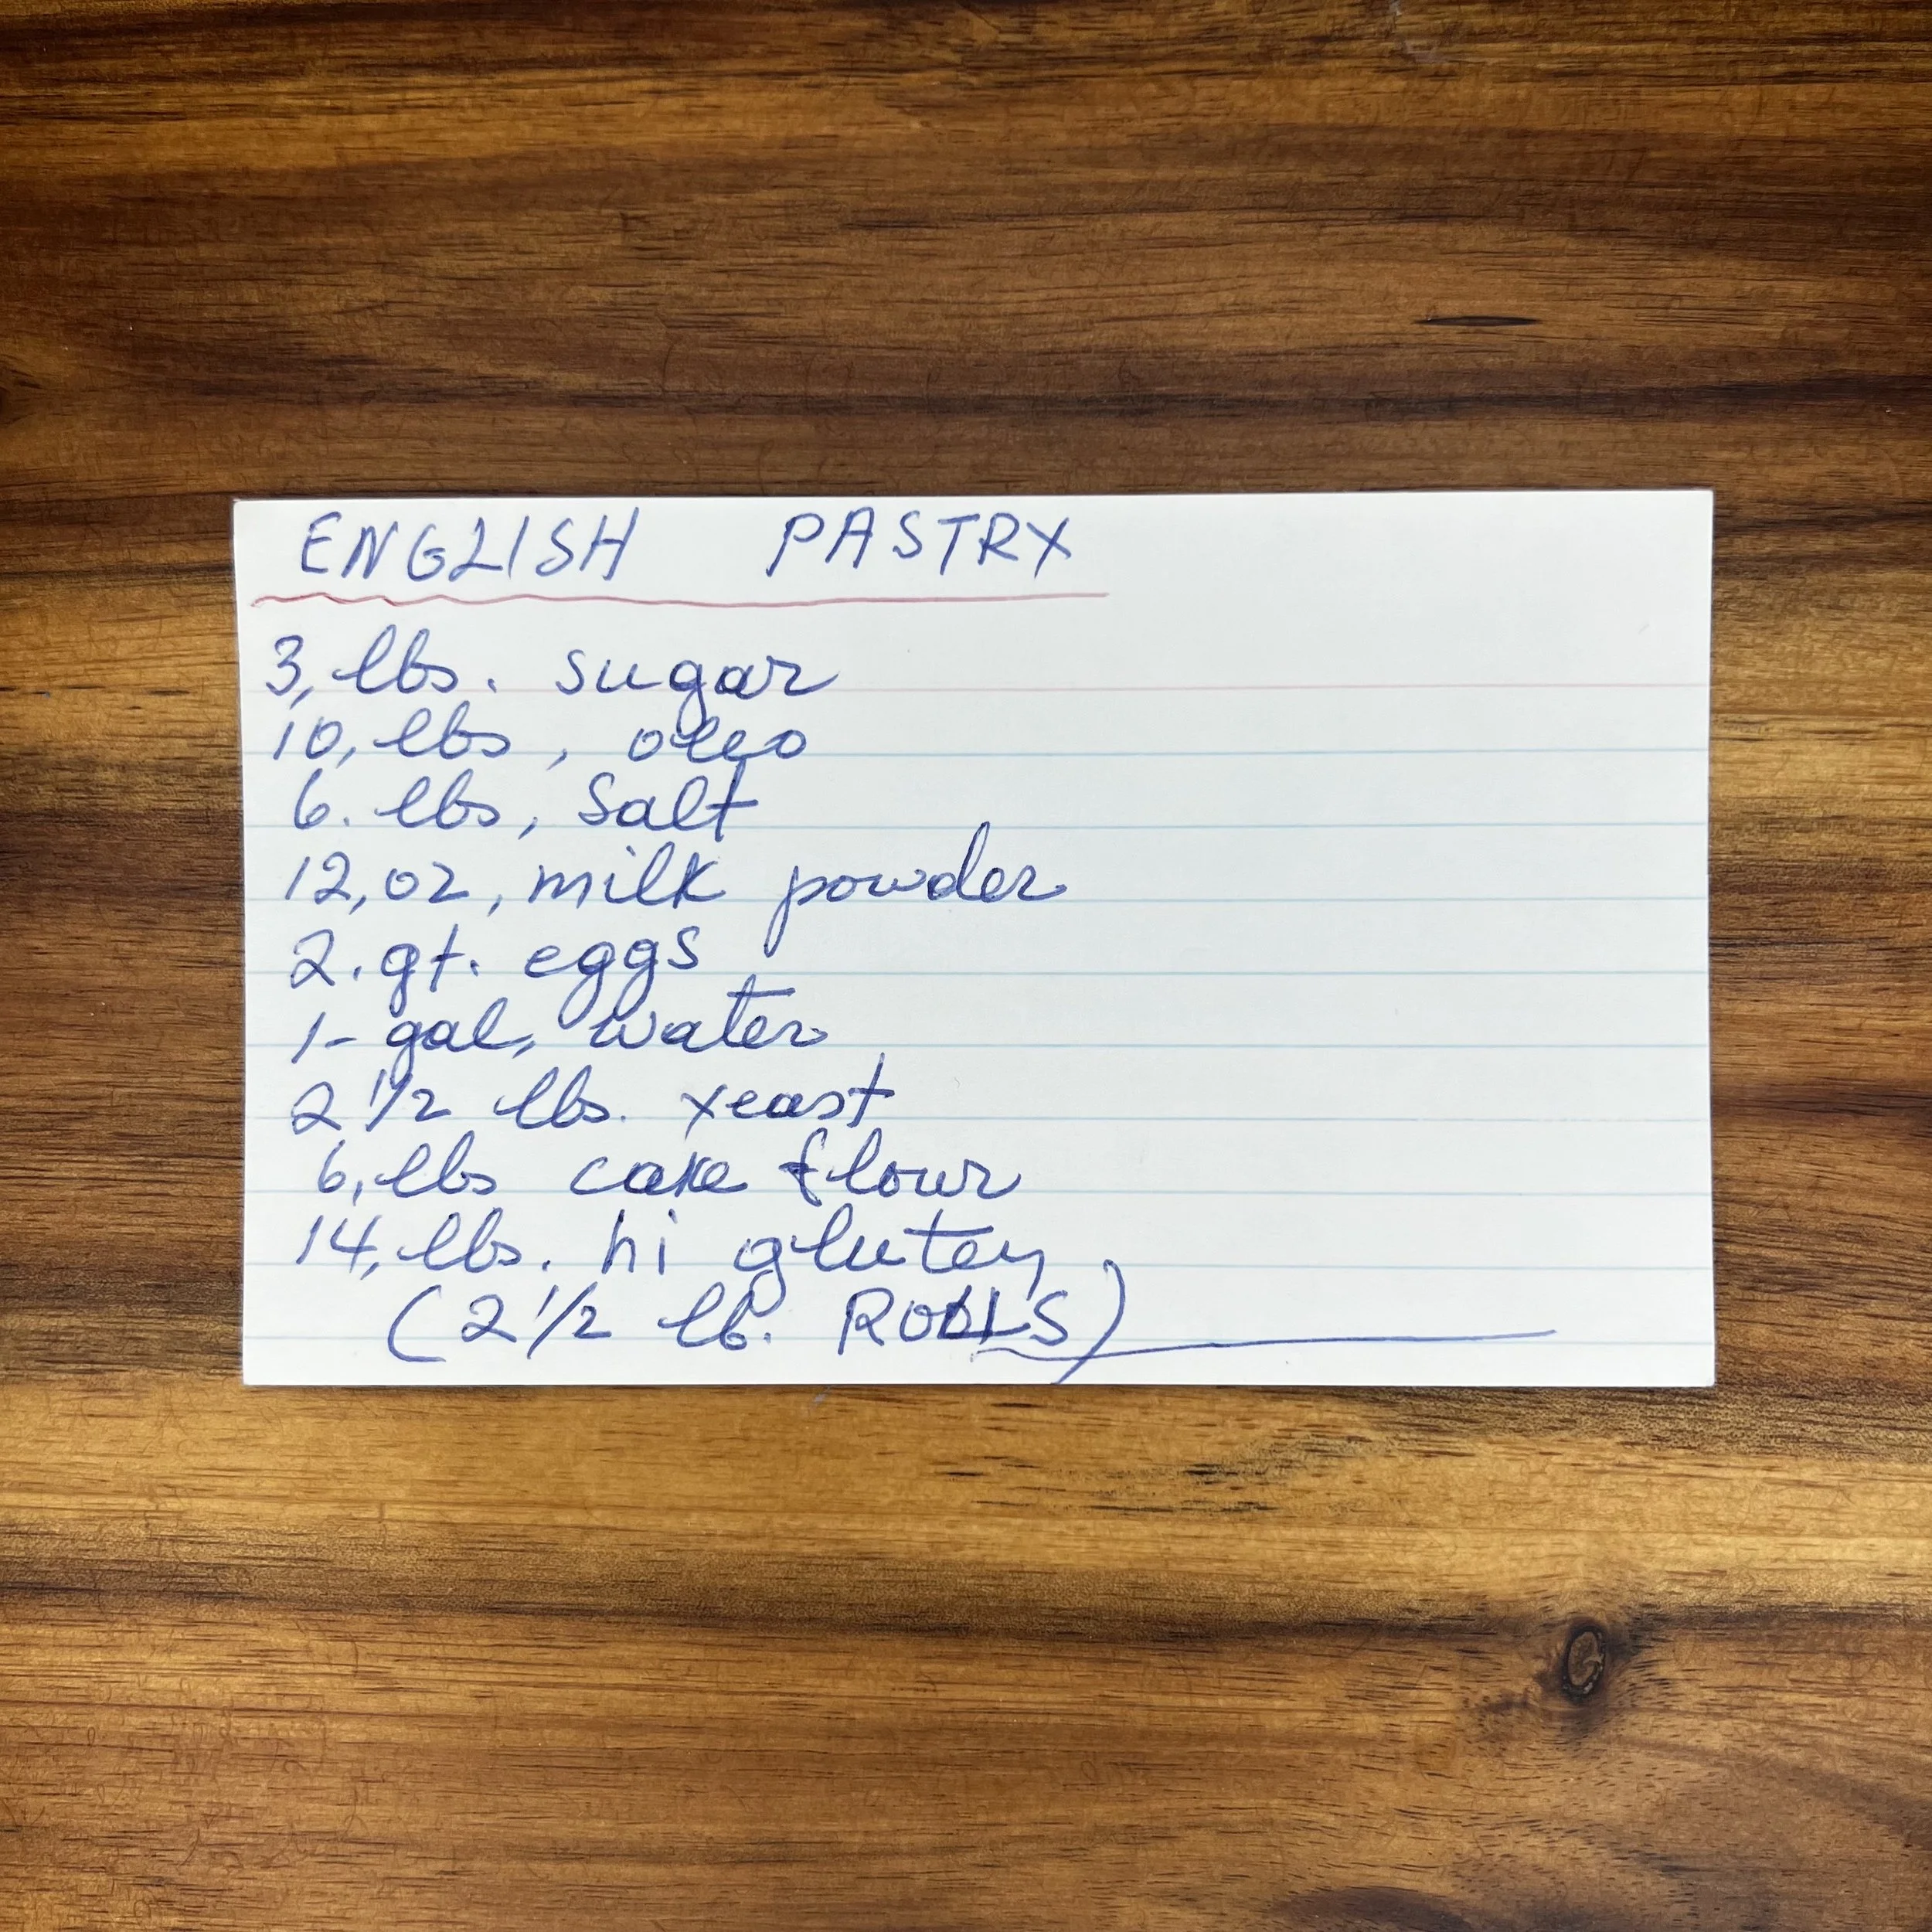 ENGLISH PASTRY
3, lbs. sugar
10, lbs, oleo
6. lbs, Salt
12, oz, milk powder
2. qt. eggs
1- gal, water
2 1/2 lbs. yeast
6, lbs cake flour
14, lbs. hi gluten
(2 1/2 lb. ROLLS)